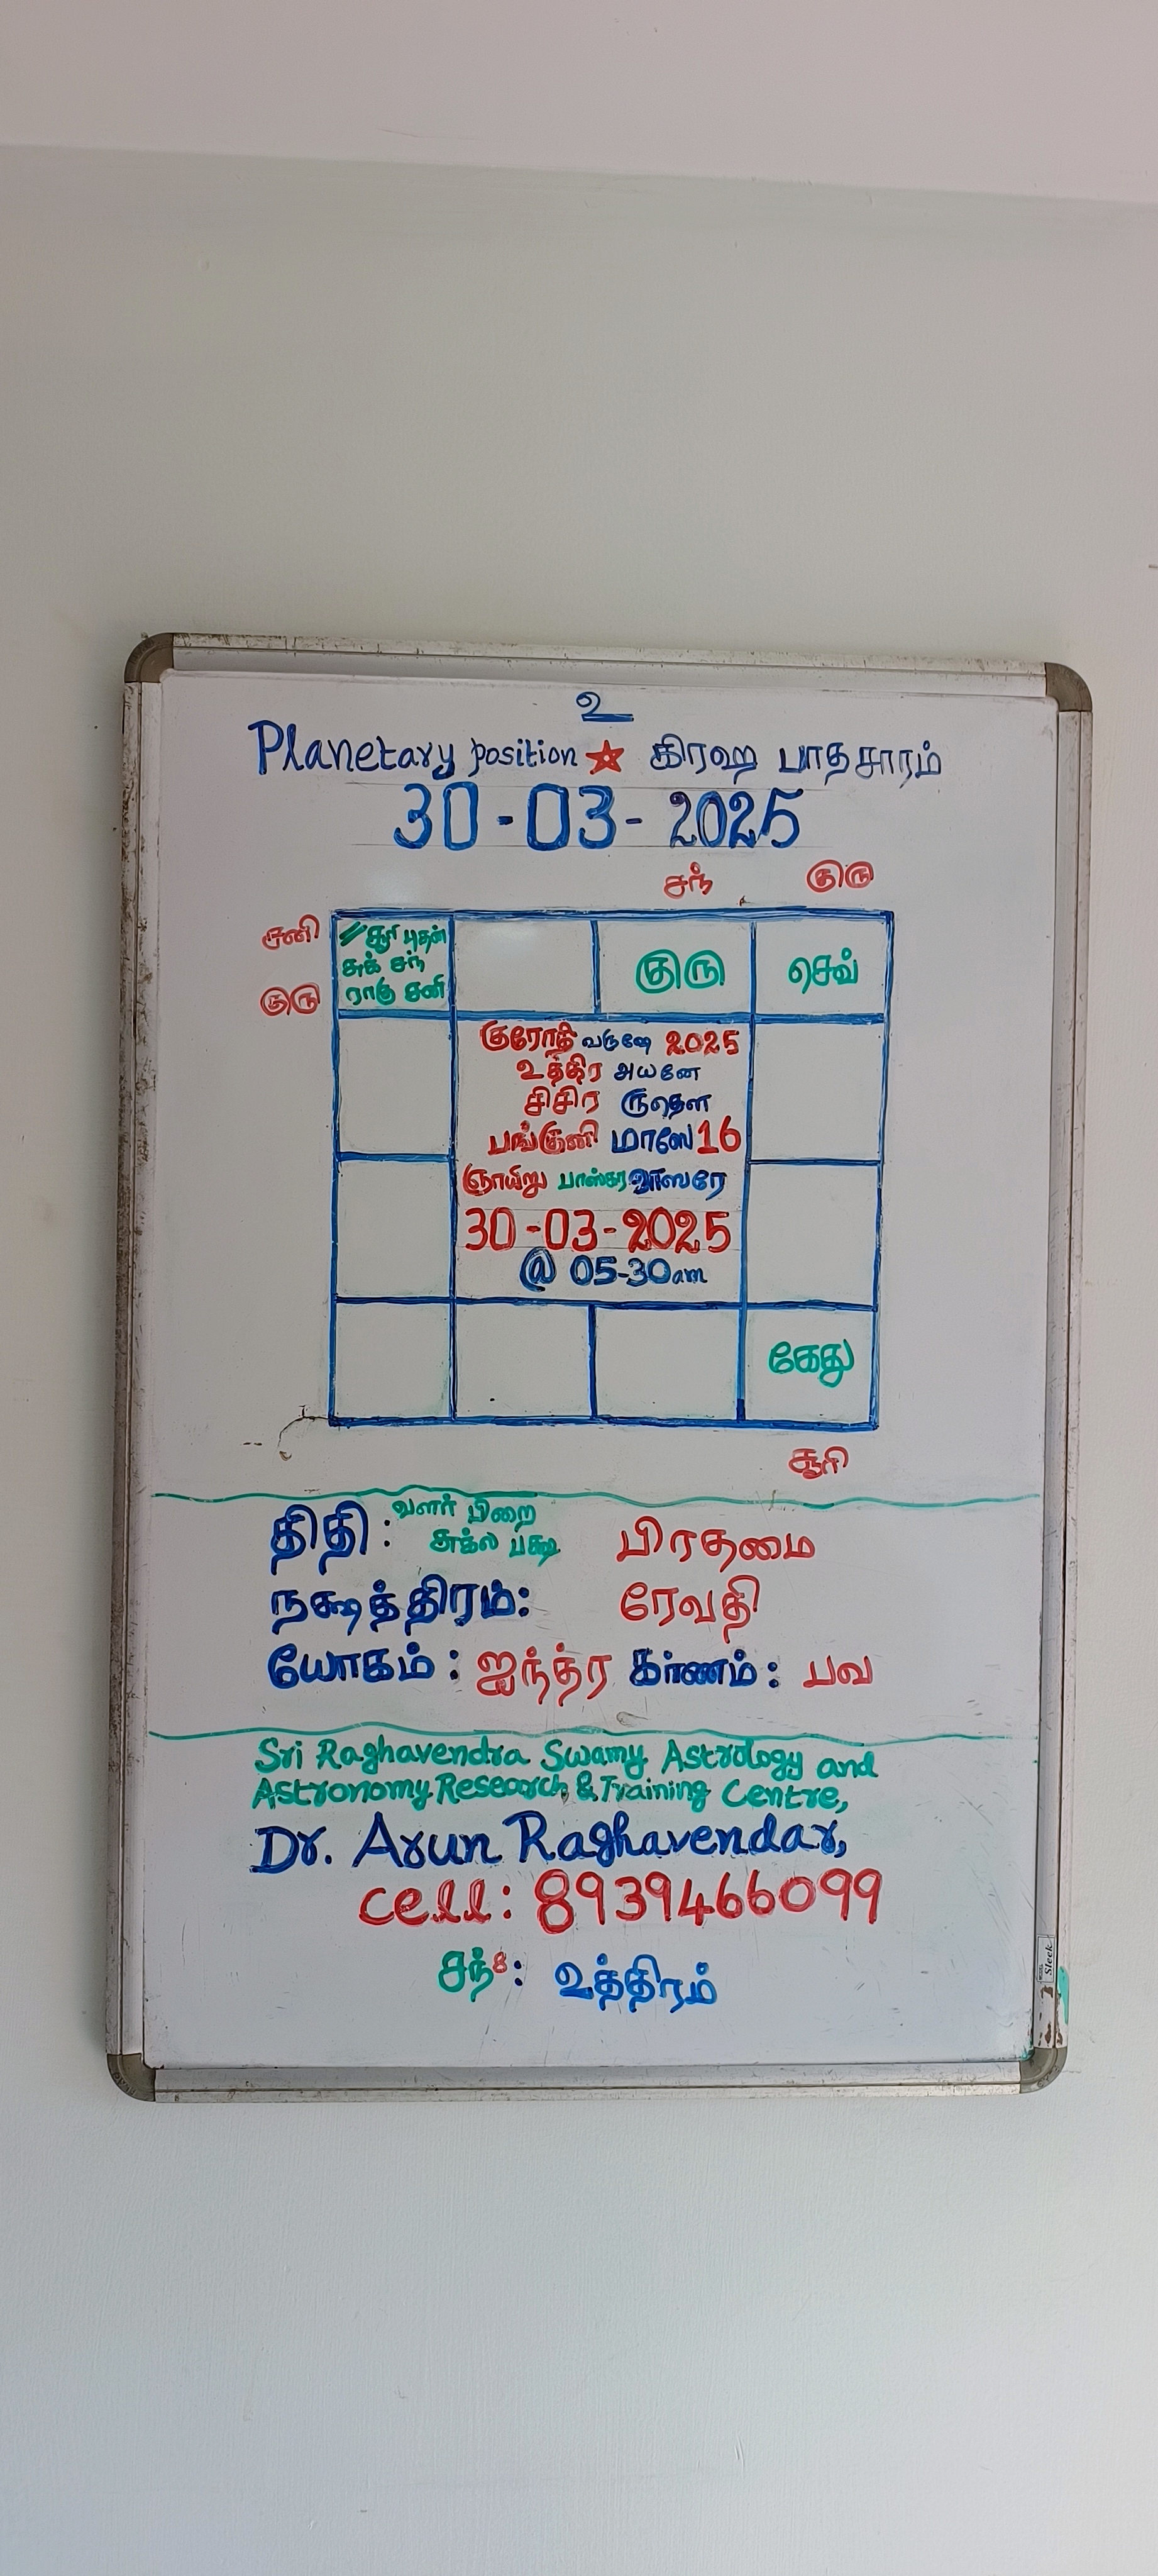 உ
Planetary position ★ கிரஹ பாதசாரம்
30-03-2025
சந் குரு
சனி
குரு
// சூரி புதன்
சுக் சந்
ராகு சனி
குரு
செவ்
குரோதி வருஷே 2025
உத்திர அயனே
சிசிர ருதௌ
பங்குனி மாஸே 16
ஞாயிறு பாஸ்கர வாஸரே
30-03-2025
@ 05-30am
கேது
சூரி
திதி: வளர் பிறை
சுக்ல பக்ஷ பிரதமை
நக்ஷத்திரம்: ரேவதி
யோகம்: ஐந்த்ர கர்ணம்: பவ
Sri Raghavendra Swamy Astrology and
Astronomy Research & Training Centre,
Dr. Arun Raghavendar,
cell: 8939466099
சந்8: உத்திரம்
Sleek